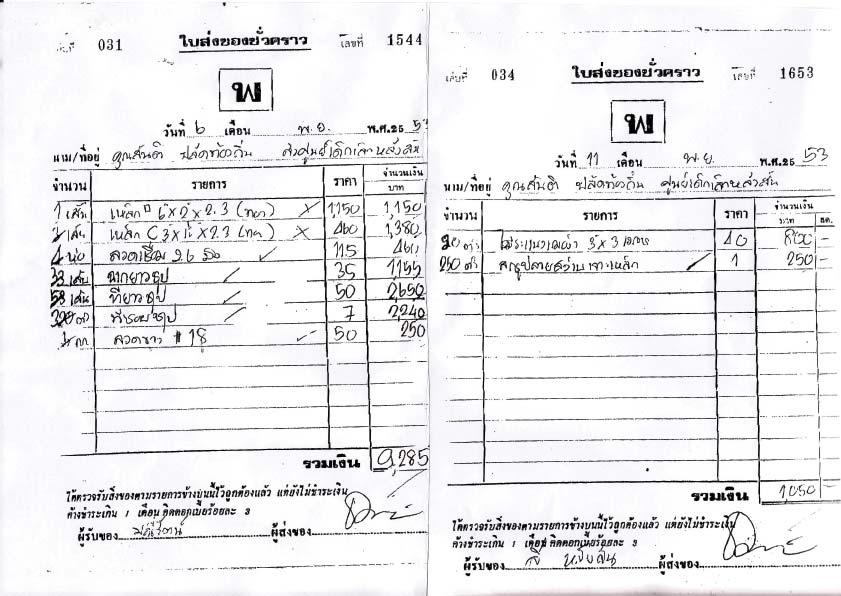 031 ใบส่งของชั่วคราว เลขที่ 1544
พ
วันที่ 6 เดือน พ.ย. พ.ศ.25 53
นาม/ที่อยู่ คุณสันติ ปลัดท้องถิ่น
จำนวน รายการ ราคา จำนวนเงิน
บาท
1 เส้น เหล็ก 6x2x2.3 (หนา) 1,150 1,150
เส้น เหล็ก C 3x1½x2.3 (หนา) 460 1,380
4 ลวดเชื่อม 2.6 115 460
33 เส้น ฉากยาว 35 1155
53 เส้น ทียาว 50 2,650
320 ตัว ทีซอย 7 2,240
ลวดขาว #18 50 250
รวมเงิน 9,285
ได้ตรวจรับสิ่งของตามรายการข้างบนนี้ไว้ถูกต้องแล้ว แต่ยังไม่ชำระเงิน
ค้างชำระเกิน 1 เดือน คิดดอกเบี้ยร้อยละ 3
ผู้รับของ ผู้ส่งของ
เล่มที่ 034 ใบส่งของชั่วคราว เลขที่ 1653
พ
วันที่ 11 เดือน พ.ย. พ.ศ.25 53
นาม/ที่อยู่ คุณสันติ ปลัดท้องถิ่น ศูนย์เด็กเล็ก
จำนวน รายการ ราคา จำนวนเงิน
บาท สต.
20 ตัว 3x3 40 800 -
250 ตัว สกรูปลายสว่านเจาะเหล็ก 1 250 -
รวมเงิน 1,050 -
ได้ตรวจรับสิ่งของตามรายการข้างบนนี้ไว้ถูกต้องแล้ว แต่ยังไม่ชำระเงิน
ค้างชำระเกิน 1 เดือน คิดดอกเบี้ยร้อยละ 3
ผู้รับของ ผู้ส่งของ